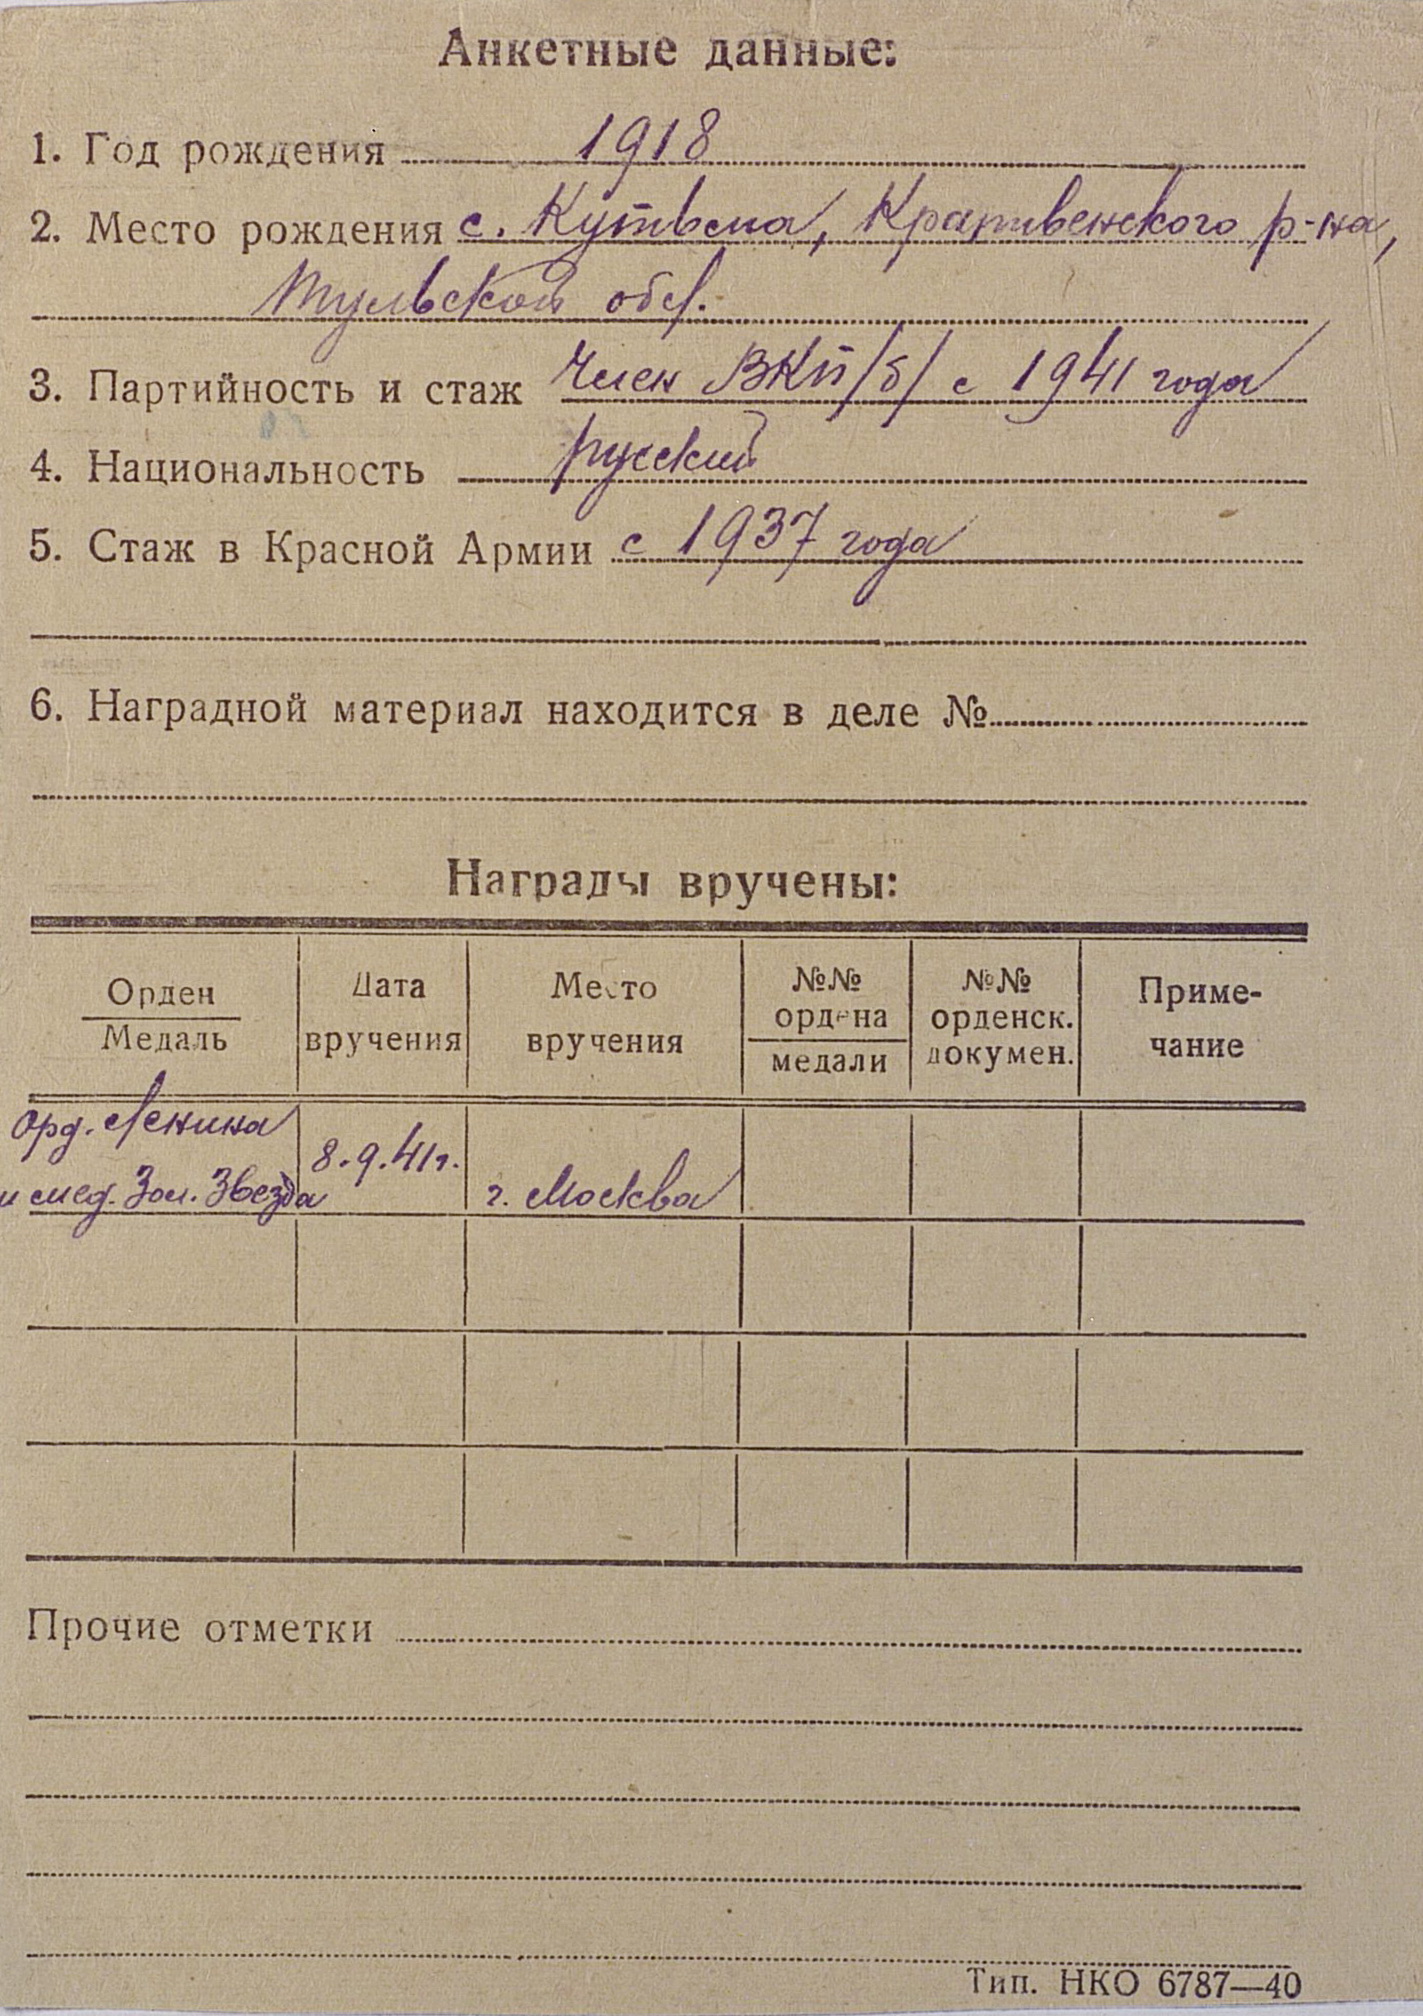 Анкетные данные:
1. Год рождения 1918
2. Место рождения с. Кутьма, Крапивенского р-на,
Тульской обл.
3. Партийность и стаж Член ВКП/б/ с 1941 года
4. Национальность русский
5. Стаж в Красной Армии с 1937 года
6. Наградной материал находится в деле №
Награды вручены:
Орден Медаль Дата вручения Место вручения №№ ордена медали №№ орденск. докумен. Приме-чание
Орд. Ленина
и мед. Зол. Звезда 8.9.41г. г. Москва
Прочие отметки
Тип. НКО 6787—40